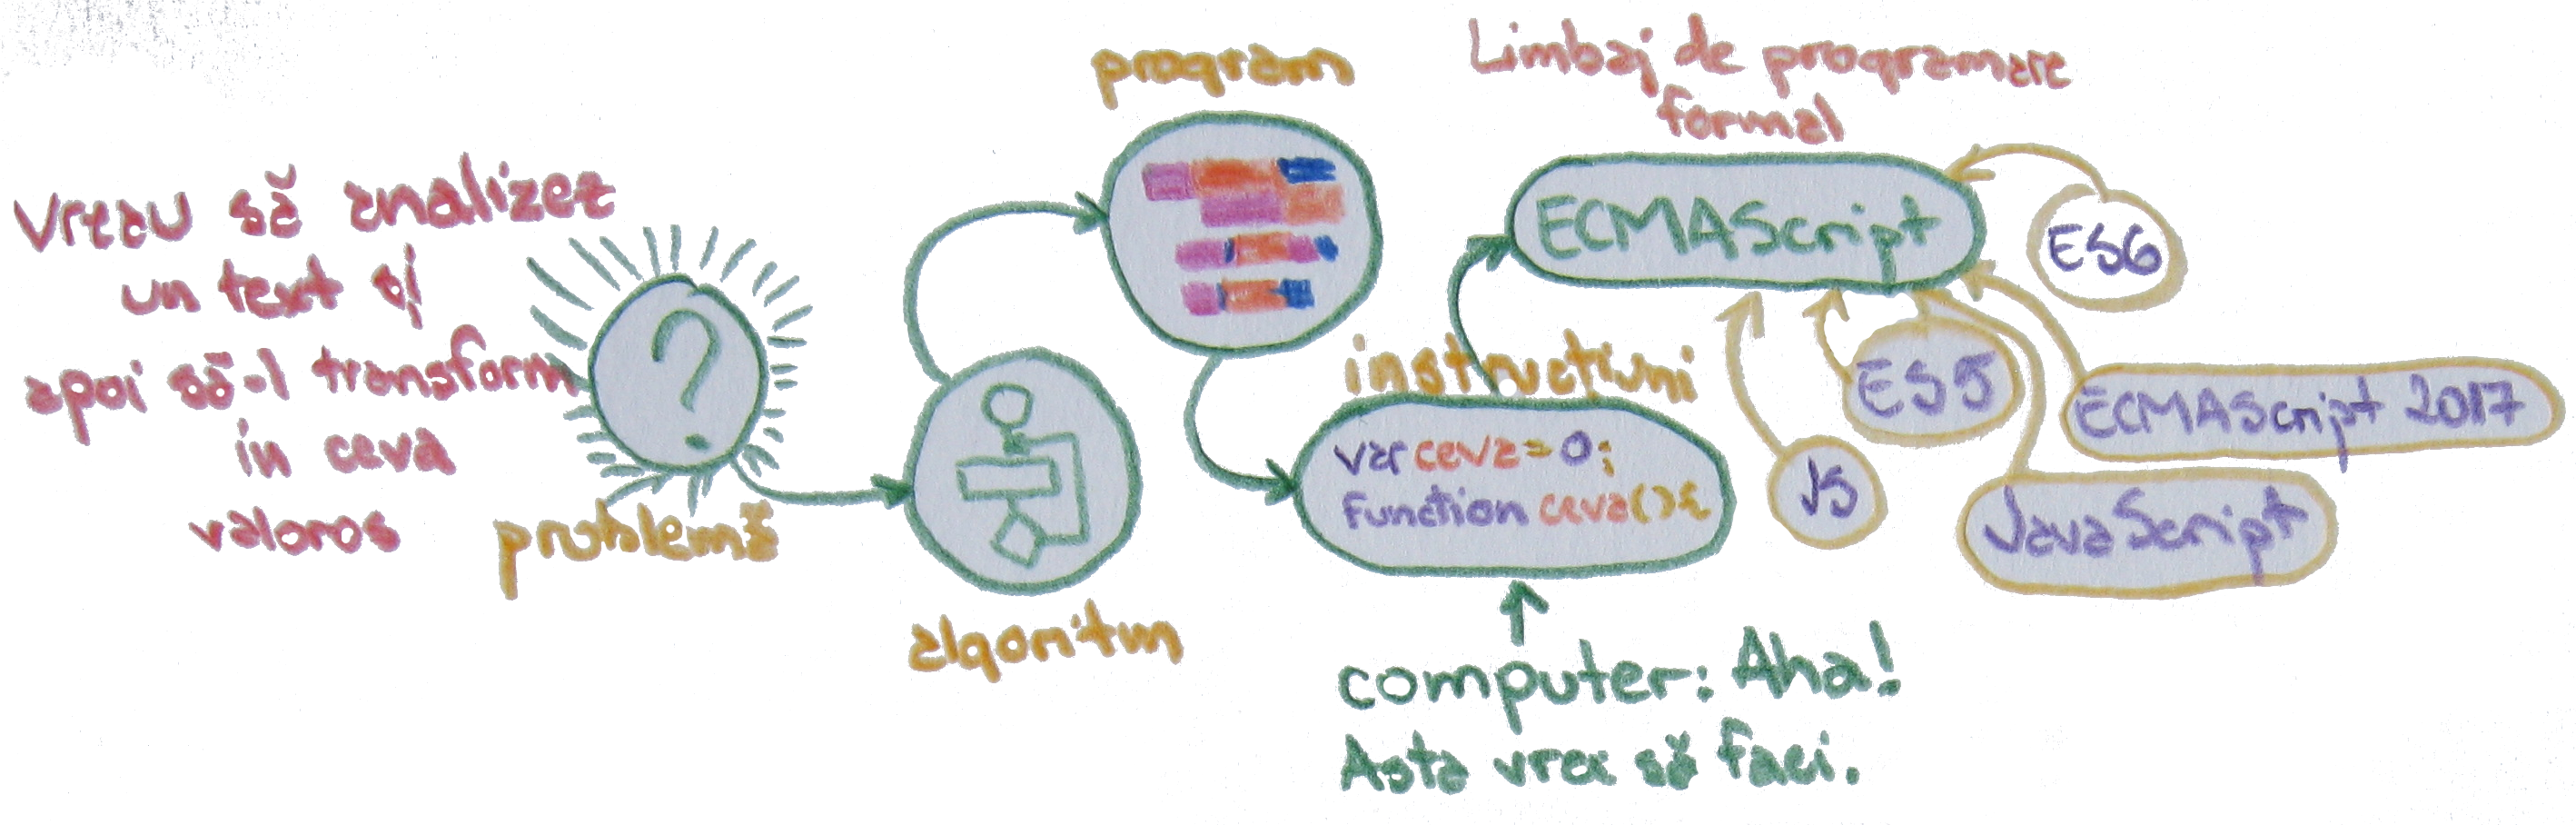 Vreau să analizez
un text și
apoi să-l transform
in ceva
valoros
problemă
algoritm
program
instrucțiuni
var ceva = 0;
function ceva() {
computer: Aha!
Asta vrei să faci.
Limbaj de programare
formal
ECMAScript
ES6
ES5
ECMAScript 2017
JS
JavaScript